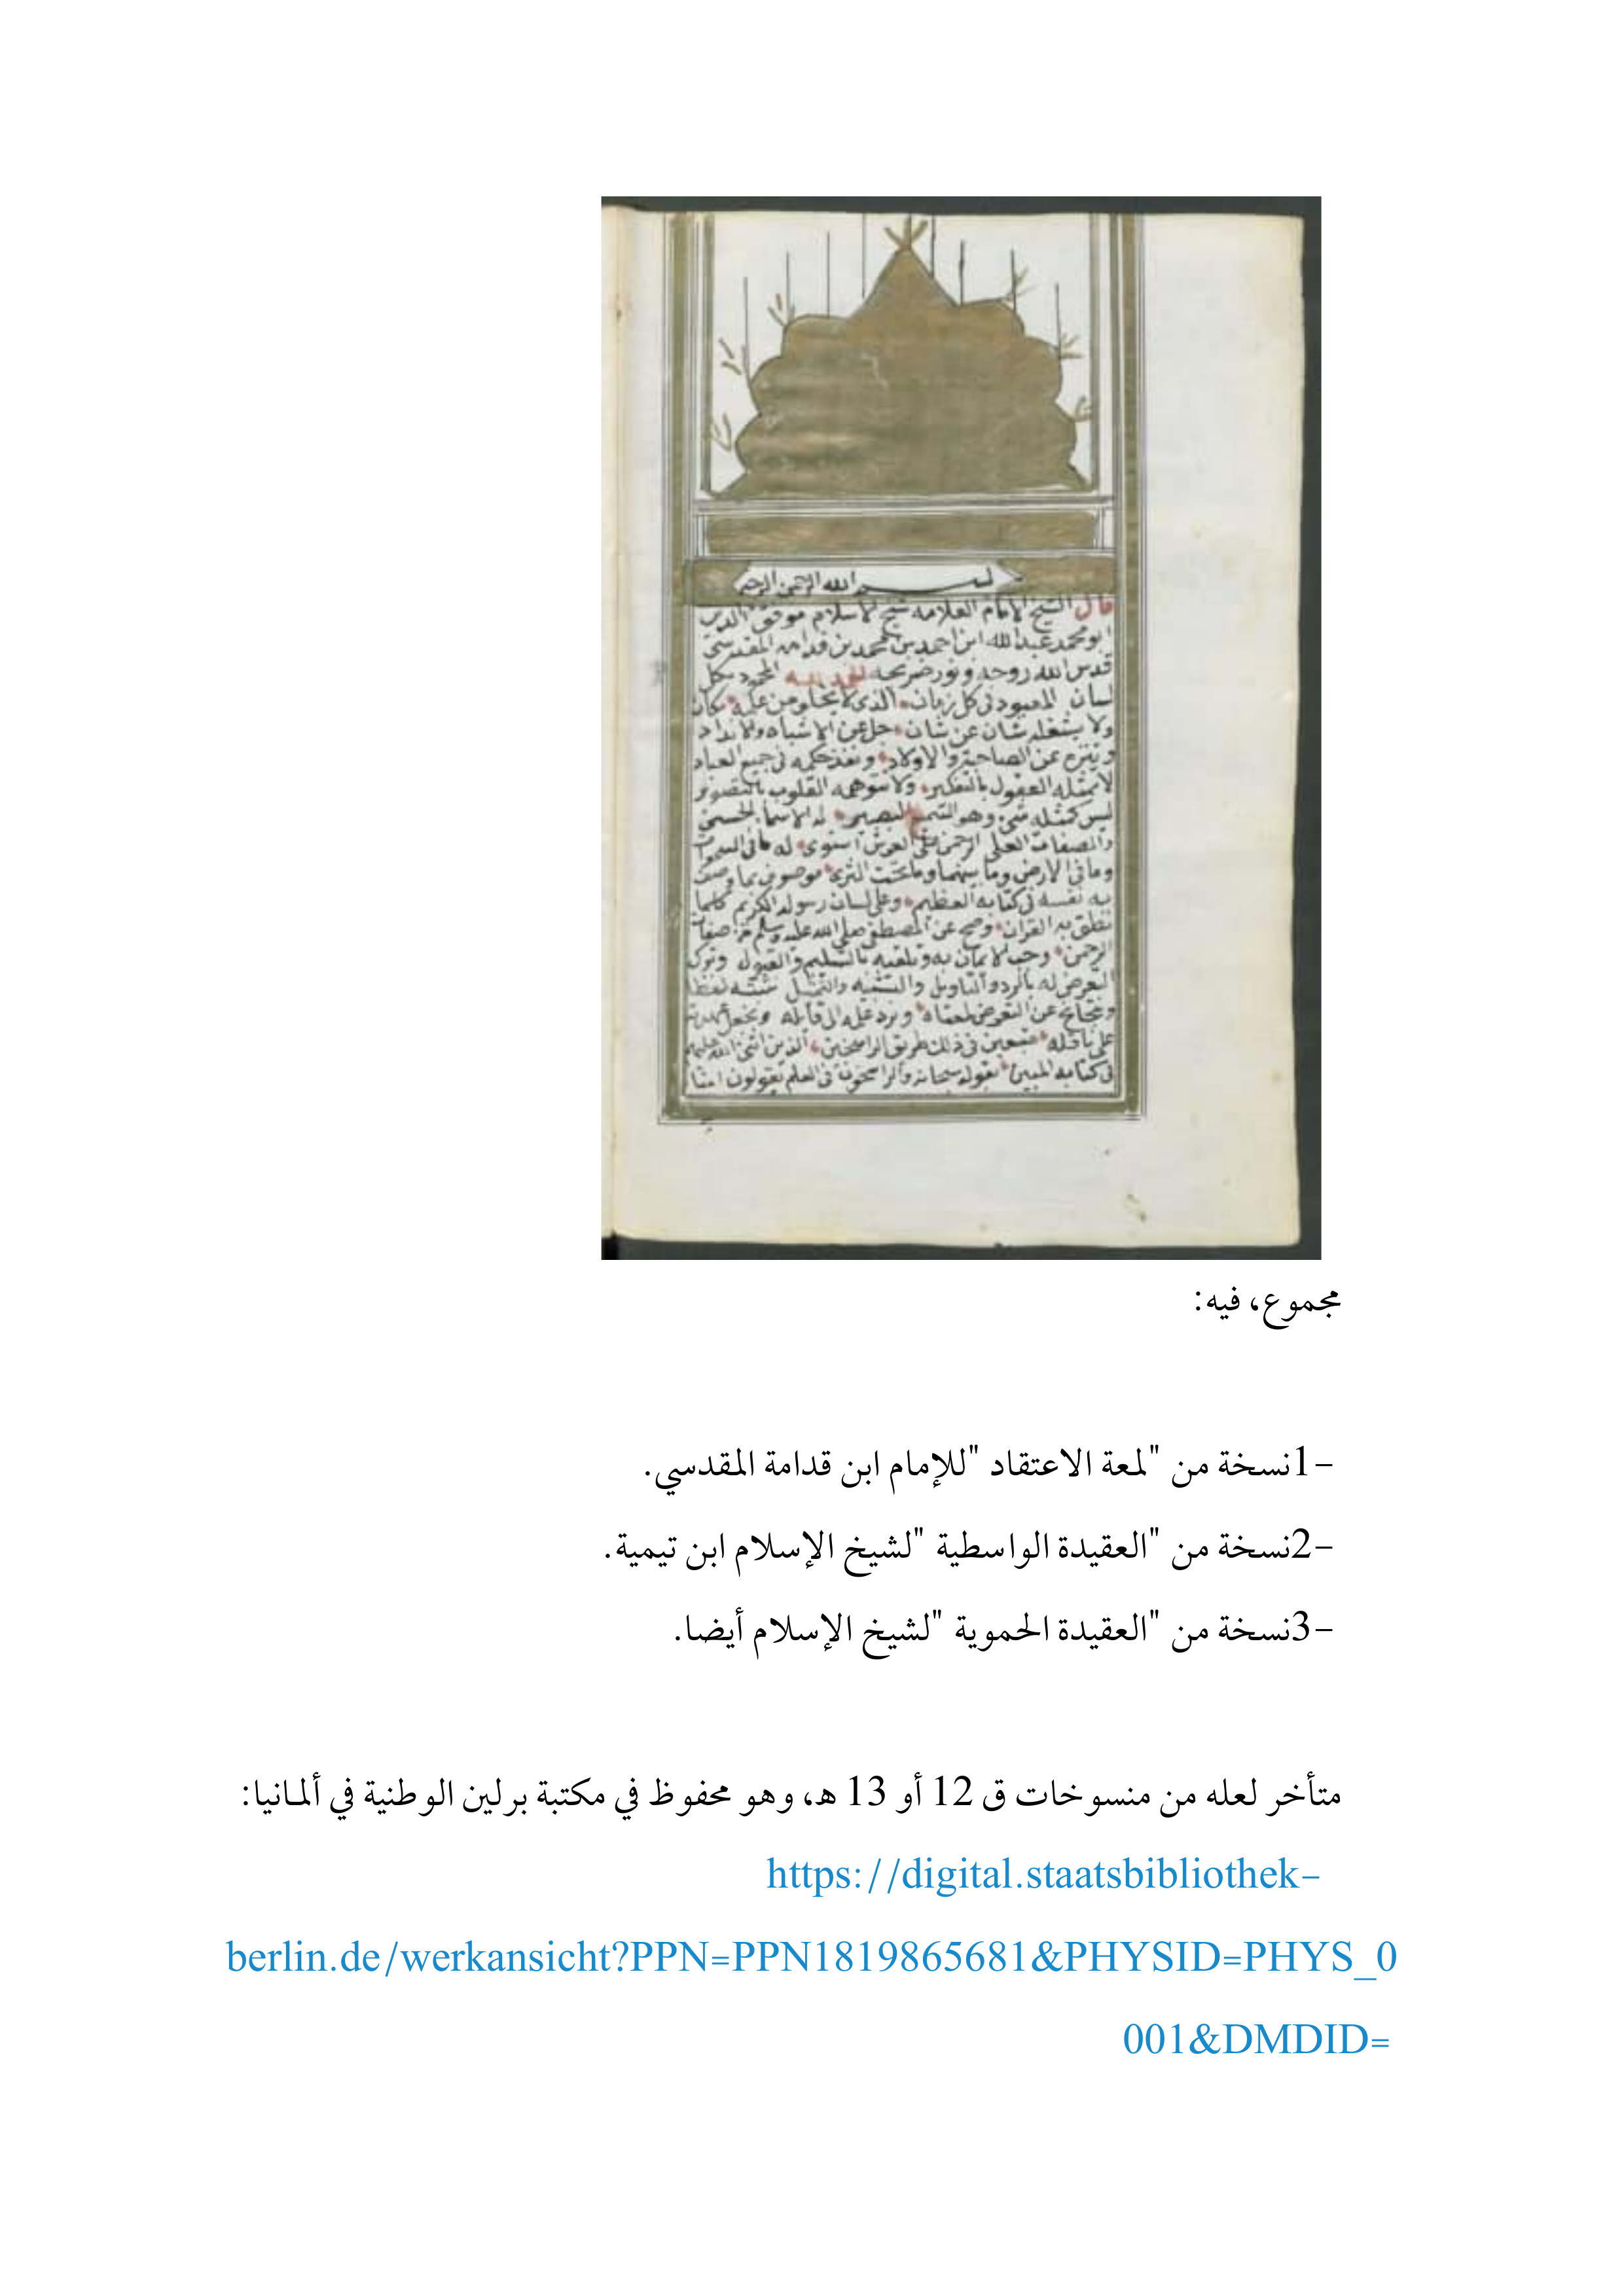 بسم الله الرحمن الرحيم
قال الشيخ الامام العلامه شيخ الاسلام موفق الدين
ابو محمد عبد الله ابن احمد بن محمد بن قدامه المقدسي
قدس الله روحه ونور ضريحه الحمد لله المحمود بكل
لسان المعبود في كل زمان الذي لا يخلو من علمه مكان
ولا يشغله شان عن شان جل عن الاشباه والانداد
وتنزه عن الصاحبة والاولاد ونفذ حكمه في جميع العباد
لا تمثله العقول بالتفكير ولا تتوهمه القلوب بالتصوير
ليس كمثله شي وهو السميع البصير له الاسما الحسنى
والصفات العلى الرحمن على العرش استوى له ما في السموات
وما في الارض وما بينهما وما تحت الثرى موصوف بما وصف
به نفسه في كتابه العظيم وعلى لسان رسوله الكريم كلما
نطق به القران وصح عن المصطفى صلى الله عليه وسلم من صفات
الرحمن وجب الايمان به وتلقيه بالتسليم والقبول وترك
التعرض له بالرد والتاويل والتشبيه والتمثيل لفظا
عن التعرض لمعناه ونرد علمه الى قائله ونجعل عهدته
على ناقله متبعين في ذلك طريق الراسخين الذين اثنى الله عليهم
في كتابه المبين بقوله سبحانه والراسخون في العلم يقولون امنا
مجموع، فيه:
1-نسخة من "لمعة الاعتقاد "للإمام ابن قدامة المقدسي.
2-نسخة من "العقيدة الواسطية "لشيخ الإسلام ابن تيمية.
3-نسخة من "العقيدة الحموية "لشيخ الإسلام أيضا.
متأخر لعله من منسوخات ق 12 أو 13 هـ، وهو محفوظ في مكتبة برلين الوطنية في ألمانيا:
https://digital.staatsbibliothek-
berlin.de/werkansicht?PPN=PPN1819865681&PHYSID=PHYS_0
001&DMDID=